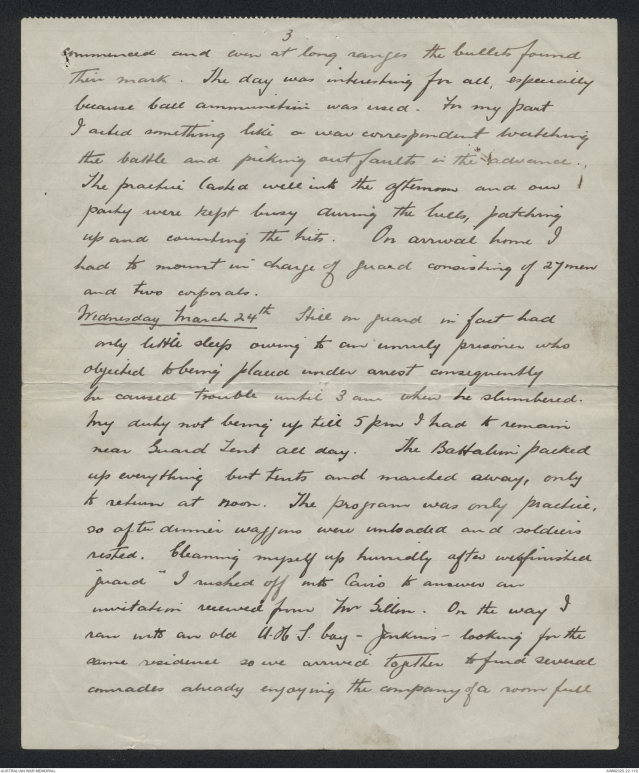 3
commenced and even at long ranges the bullets found
their mark. The day was interesting for all, especially
because ball ammunition was used. For my part
I acted something like a war correspondent watching
the battle and picking out faults in the advance.
The practice lasted well into the afternoon and our
party were kept busy during the lulls, patching
up and counting the hits. On arrival home I
had to mount in charge of guard consisting of 27 men
and two corporals.
Wednesday March 24th Still on guard in fact had
only little sleep owing to an unruly prisoner who
objected to being placed under arrest consequently
he caused trouble until 3 am when he slumbered.
My duty not being up till 5 pm I had to remain
near Guard Tent all day. The Battalion packed
up everything but tents and marched away, only
to return at noon. The program was only practice,
so after dinner waggons were unloaded and soldiers
rested. Cleaning myself up hurriedly after we finished
"guard" I rushed off into Cairo to answer an
invitation received from Mr Gillon. On the way I
ran into an old U.H.S. boy - Jenkins - looking for the
same residence so we arrived together to find several
comrades already enjoying the company of a room full
AUSTRALIAN WAR MEMORIAL